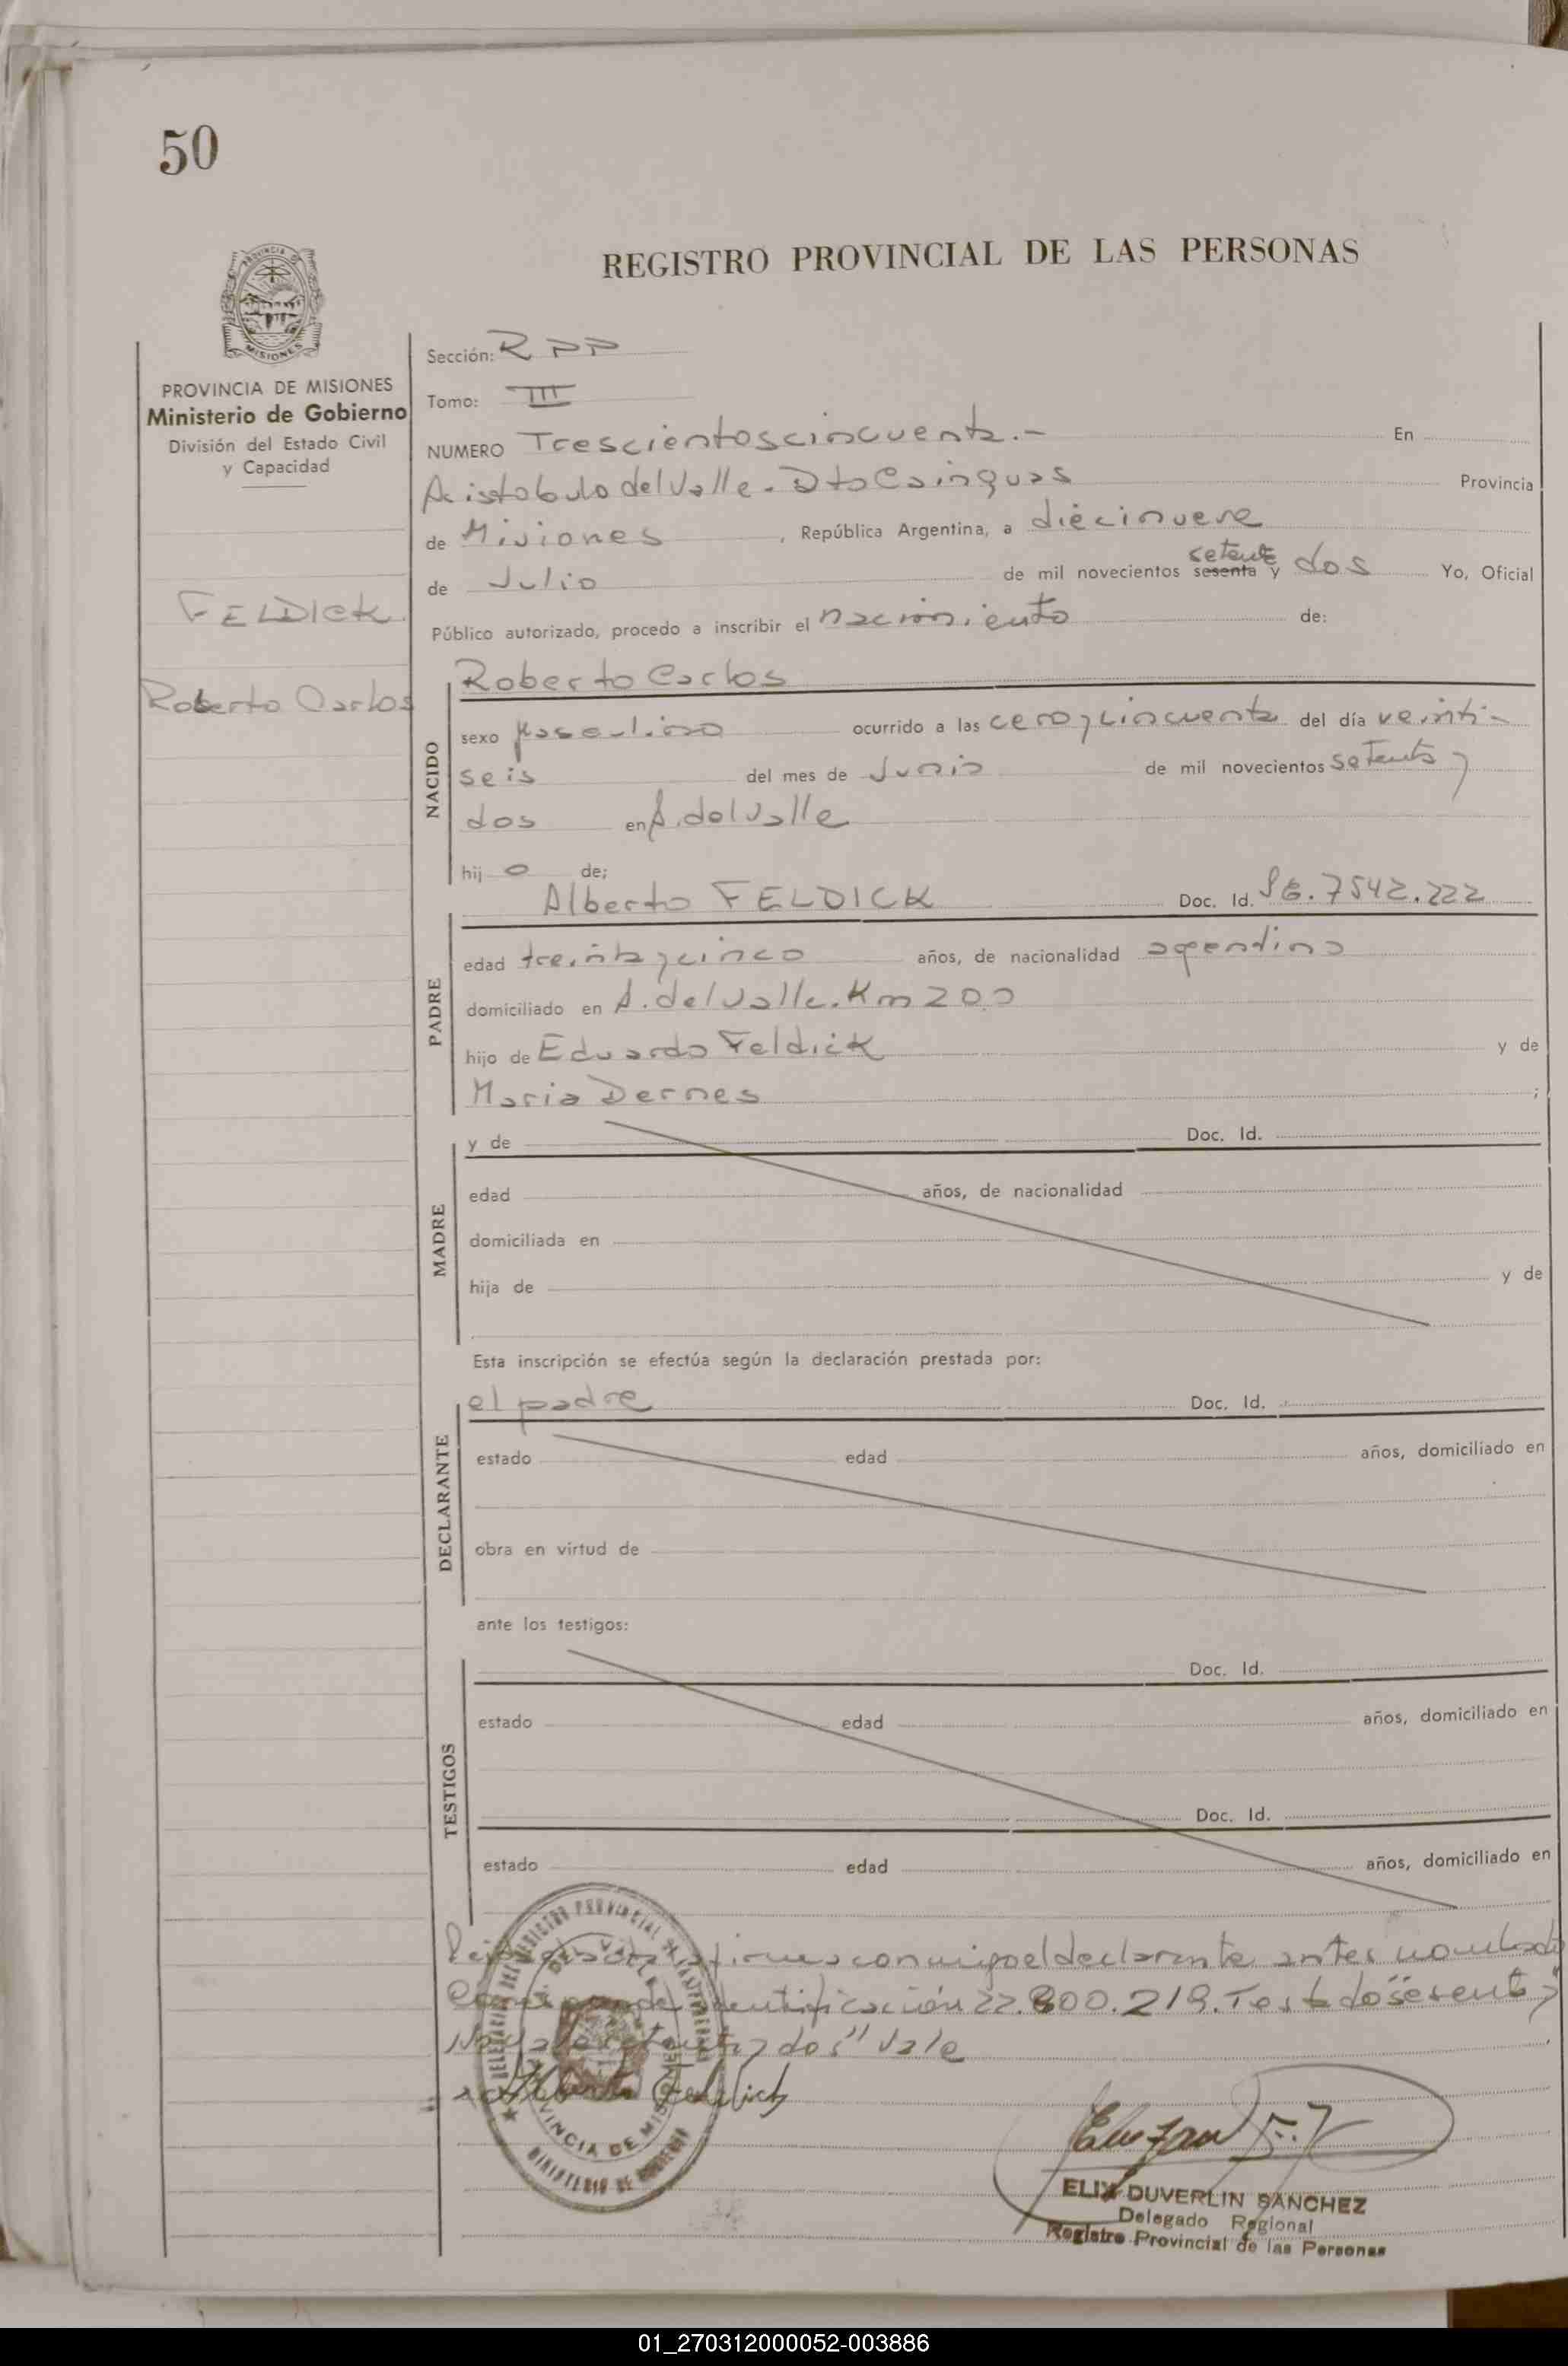 50
REGISTRO PROVINCIAL DE LAS PERSONAS
PROVINCIA DE MISIONES
Ministerio de Gobierno
División del Estado Civil
y Capacidad
FELDICK
Roberto Carlos
Sección: RPP
Tomo: III
NUMERO Trescientoscincuenta.- En
Aristobulo del Valle. Dto Cainguas Provincia
de Misiones, República Argentina, a diecinueve
setenta
de Julio de mil novecientos sesenta y dos Yo, Oficial
Público autorizado, procedo a inscribir el nacimiento de:
NACIDO
Roberto Carlos
sexo masculino ocurrido a las cero y cincuenta del día veinti-
seis del mes de Junio de mil novecientos setenta y
dos en A. del Valle
hij o de;
PADRE
Alberto FELDICK Doc. Id. 7542.222
edad treinta y cinco años, de nacionalidad agentino
domiciliado en A. del Valle. Km 200
hijo de Eduardo Feldick y de
Maria Dernes ;
MADRE
y de Doc. Id.
edad años, de nacionalidad
domiciliada en
hija de y de
Esta inscripción se efectúa según la declaración prestada por:
DECLARANTE
el padre Doc. Id.
estado edad años, domiciliado en
obra en virtud de
ante los testigos:
TESTIGOS
Doc. Id.
estado edad años, domiciliado en
Doc. Id.
estado edad años, domiciliado en
conmigo el declarante antes nombrado
identificación 22.800.219. Testado "sesenta y"
dos" Vale
PROVINCIA DE MISIONES
ELIX DUVERLIN SANCHEZ
Delegado Regional
Registro Provincial de las Personas
01_270312000052-003886